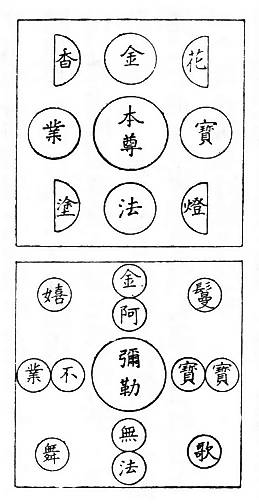 香 金 花
業 本尊 寶
塗 法 燈
嬉 金 鬘
阿
業 不 彌勒 寶 寶
舞 無 歌
法